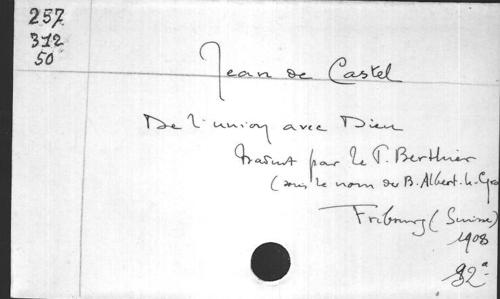 257
312
50
Jean de Castel
De l'union avec Dieu
traduit par le P. Berthier
(sous le nom du B. Albert-le-Gra
Fribourg (Suisse)
1908